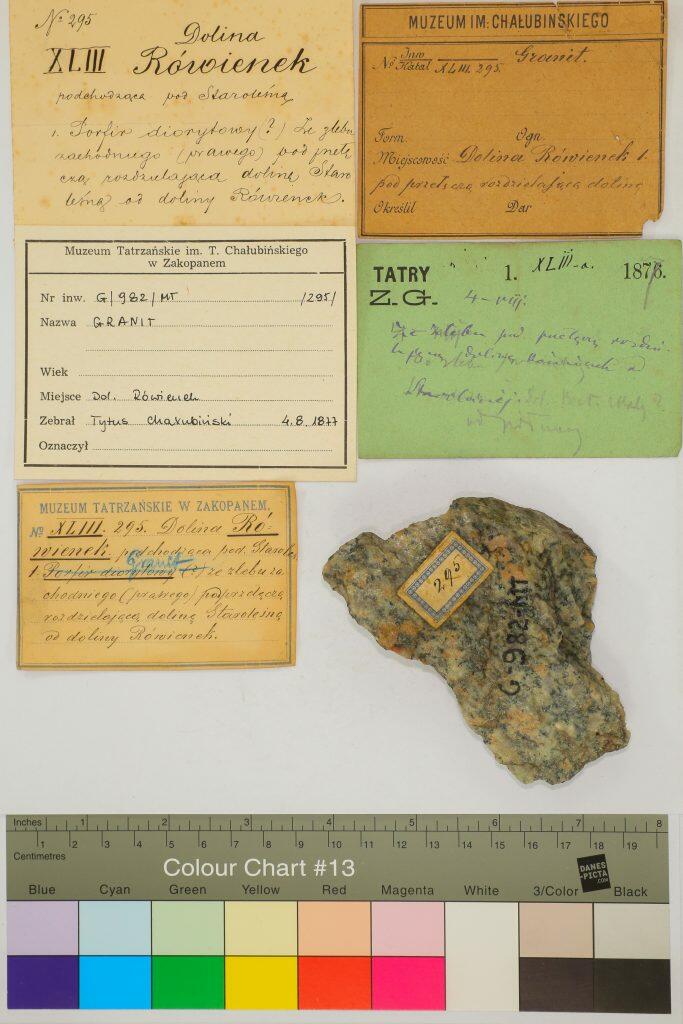 № 295
XLIII Dolina
Rówienek
podchodząca pod Staroleśną
1. Porfir diorytowy (?) Ze żlebu
zachodniego (prawego) pod przełę
czą rozdzielającą dolinę Staro
leśną od doliny Rówienek.
MUZEUM IM. CHAŁUBIŃSKIEGO
№ Inw Granit.
Katal XLIII. 295.
Form. Ogn.
Miejscowość Dolina Rówienek 1.
pod przełęczą rozdzielającą dolinę
Określił Dar
Muzeum Tatrzańskie im. T. Chałubińskiego
w Zakopanem
Nr inw. G/982/MT /295/
Nazwa GRANIT
Wiek
Miejsce Dol. Rówienek
Zebrał Tytus Chałubiński 4.8.1877
Oznaczył
TATRY 1. XLIII-a. 187
Z. G. 4-VIII.
pod
Staroleśnej. Dol.
od północy
MUZEUM TATRZAŃSKIE W ZAKOPANEM.
№ XLIII. 295. Dolina Ró-
wienek podchodząca pod Staroleś.
Granit
1. Porfir diorytowy (?) ze żlebu za
chodniego (prawego) pod przełęczą
rozdzielającą dolinę Staroleśną
od doliny Rówienek.
295
G-982/MT
Inches 1 2 3 4 5 6 7 8
1 2 3 4 5 6 7 8 9 10 11 12 13 14 15 16 17 18 19
Centimetres
Colour Chart #13
DANES
-PICTA
.COM
Blue Cyan Green Yellow Red Magenta White 3/Color Black